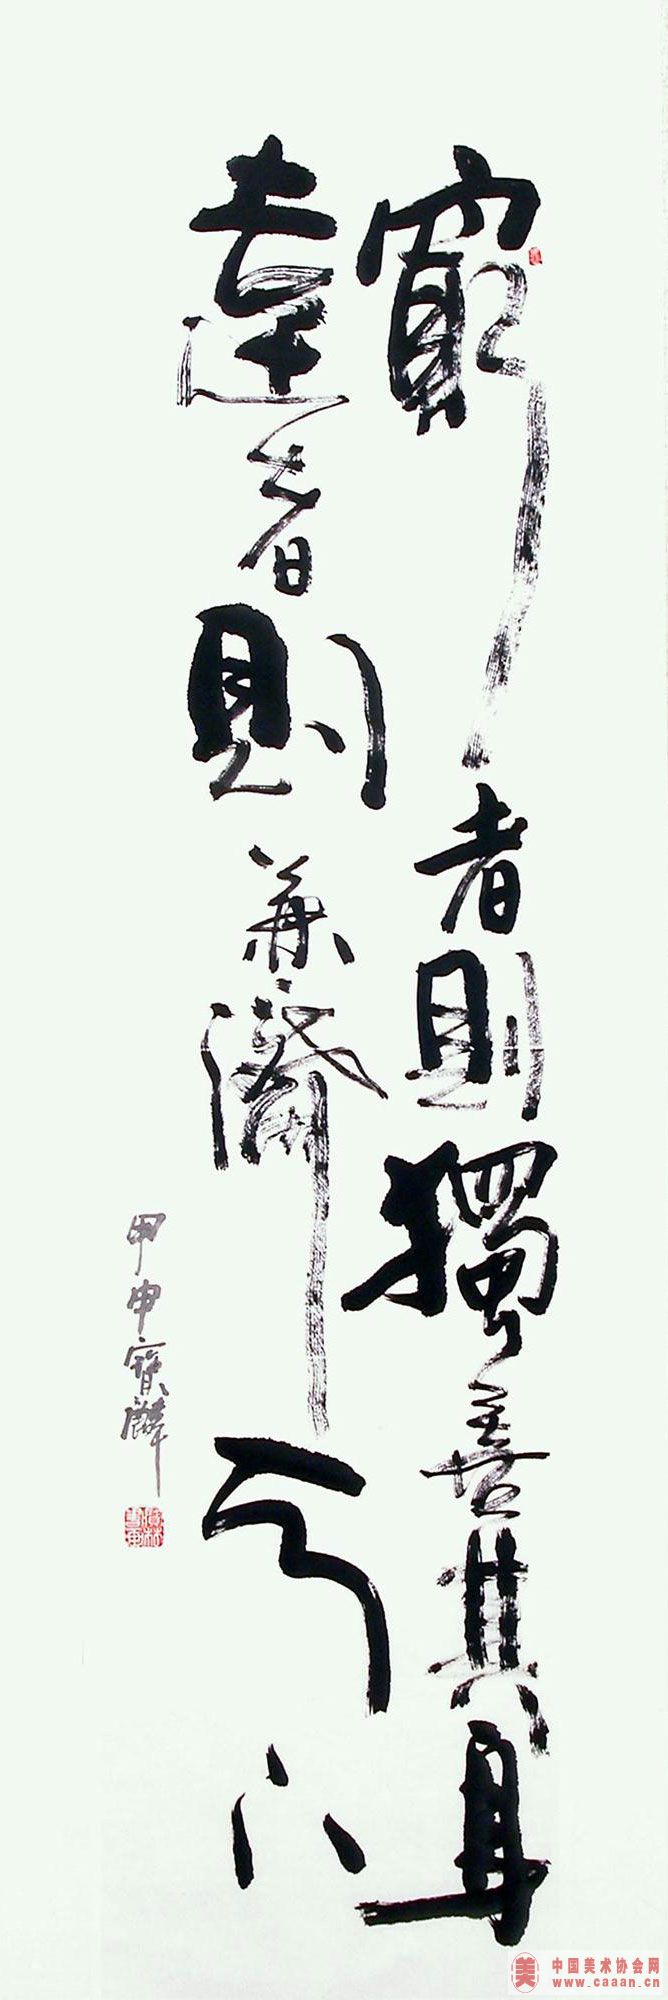 窮者則獨善其身
達者則兼濟天下
甲申寶麟
美
中国美术协会网
www.caaan.cn